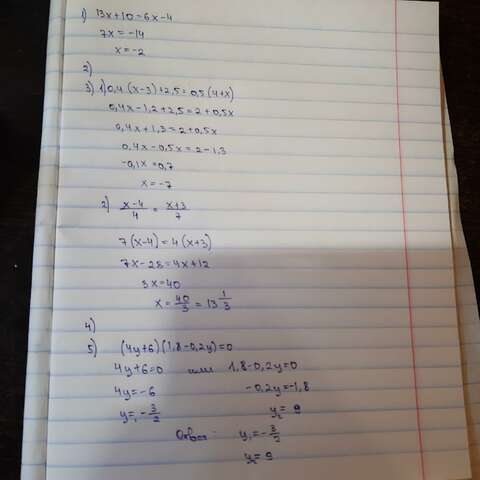 1) 13x+10-6x-4
7x=-14
x=-2
2)
3) 1) 0,4(x-3)+2,5=0,5(4+x)
0,4x-1,2+2,5=2+0,5x
0,4x+1,3=2+0,5x
0,4x-0,5x=2-1,3
-0,1x=0,7
x=-7
2) x-4/4 = x+3/7
7(x-4)=4(x+3)
7x-28=4x+12
3x=40
x=40/3=13 1/3
4)
5) (4y+6)(1,8-0,2y)=0
4y+6=0 или 1,8-0,2y=0
4y=-6 -0,2y=-1,8
y₁=-3/2 y₂=9
Ответ: y₁=-3/2
y₂=9